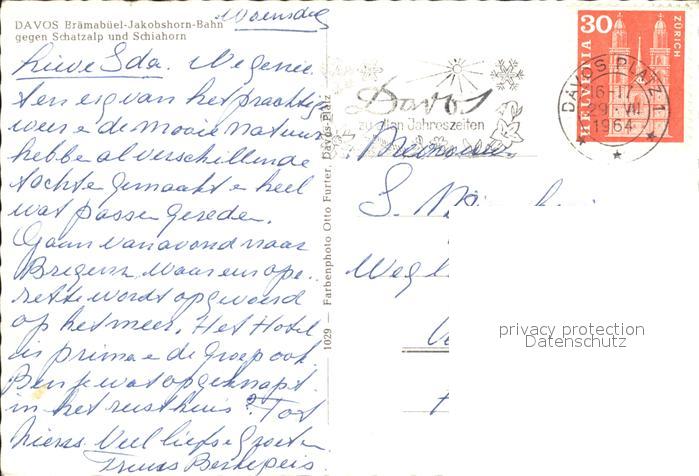 Woensdag
DAVOS Brämabüel-Jakobshorn-Bahn
gegen Schatzalp und Schiahorn
Lieve Ida. We genie
ten erg van het prachtige
weer en de mooie natuur
hebbe al verschillende
tochte gemaakt en heel
wat passen gereden.
Gaan vanavond naar
Bregenz waar een ope-
rette wordt opgevoerd
op het meer. Het Hotel
is prima en de groep ook
Ben je wat opgeknapt
in het rusthuis? Tot
ziens. Veel liefs Groeten
Truus
1029 — Farbenphoto Otto Furter, Davos-Platz
Davos
zu allen Jahreszeiten
DAVOS PLATZ 1
16-17
29.VII
1964
30
HELVETIA
ZÜRICH
Mevrouw
S.
privacy protection
Datenschutz